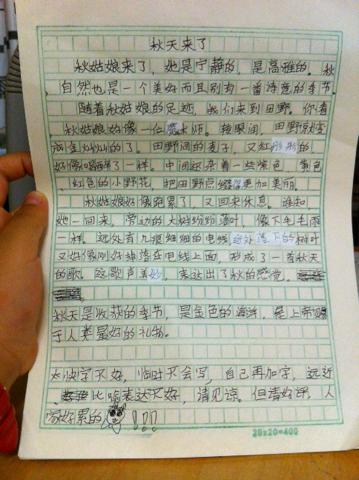 秋天来了
秋姑娘来了，她是宁静的，是高雅的。秋
自然也是一个美好而且别有一番诗意的季节。
随着秋姑娘的足迹，我们来到田野。你看
秋姑娘好像一位魔术师。转眼间，田野就变
成金灿灿的了。田野间的麦子，又红彤彤的
好像喝醉了一样。中间还夹着一些紫色，黄色
红色的小野花，把田野点缀得更加美丽。
秋姑娘好像玩累了，又回来休息。谁知
她一回来，旁边的大树纷纷落叶，像下毛毛雨
一样。远处有几根细细的电线，
又好像刚好掉落在电线上面，形成了一首秋天
的歌。这歌声美妙，表达出了秋的感觉。
秋天是收获的季节，是金色的海洋，是上帝赐
于人类最好的礼物。
比喻表达不好，请见谅。但请好评，人
家好累的!!!
20×20=400